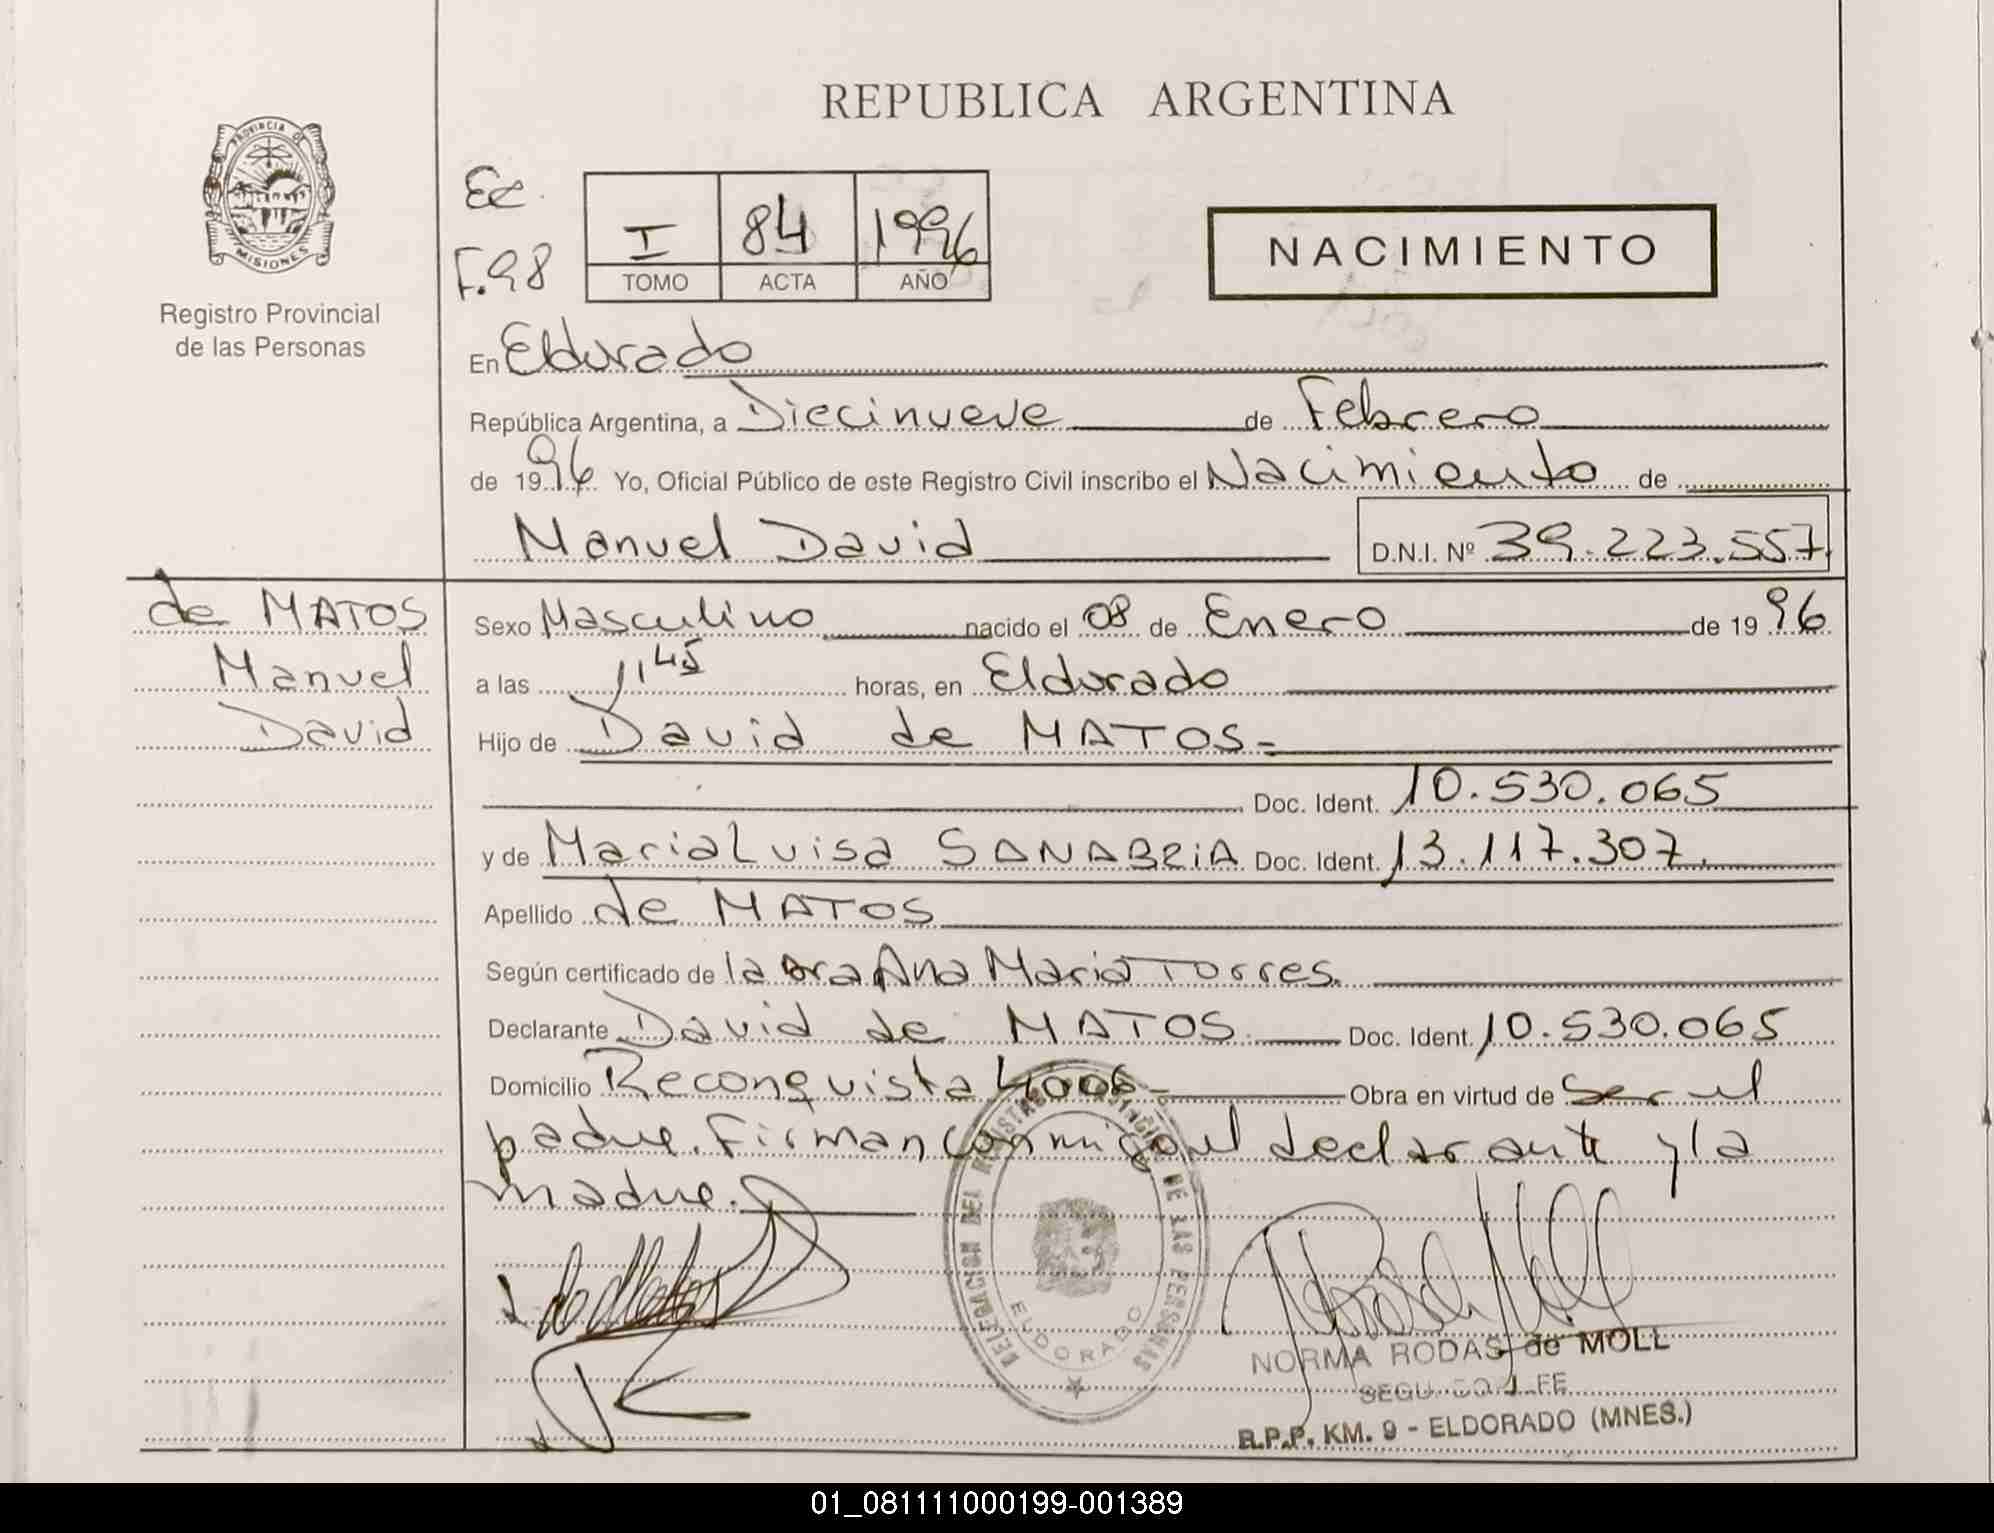 REPUBLICA ARGENTINA
PROVINCIA DE
MISIONES
Registro Provincial
de las Personas
Ec.
F.98
I 84 1996
TOMO ACTA AÑO
NACIMIENTO
En Eldorado
República Argentina, a Diecinueve de Febrero
de 1996 Yo, Oficial Público de este Registro Civil inscribo el Nacimiento de
Manuel David D.N.I. Nº 39.223.557.
de MATOS
Manuel
David
Sexo Masculino nacido el 08 de Enero de 1996
a las 11 45 horas, en Eldorado
Hijo de David de MATOS-
Doc. Ident. 10.530.065
y de Maria Luisa SANABRIA Doc. Ident. 13.117.307.
Apellido de MATOS
Según certificado de la Dra Ana Maria Torres.
Declarante David de MATOS. Doc. Ident. 10.530.065
Domicilio Reconquista 4006- Obra en virtud de ser el
padre. Firman conmigo el declarante y la
madre.
DELEGACION DEL REGISTRO PROVINCIAL DE LAS PERSONAS
ELDORADO
NORMA RODAS de MOLL
R.P.P. KM. 9 - ELDORADO (MNES.)
01_081111000199-001389